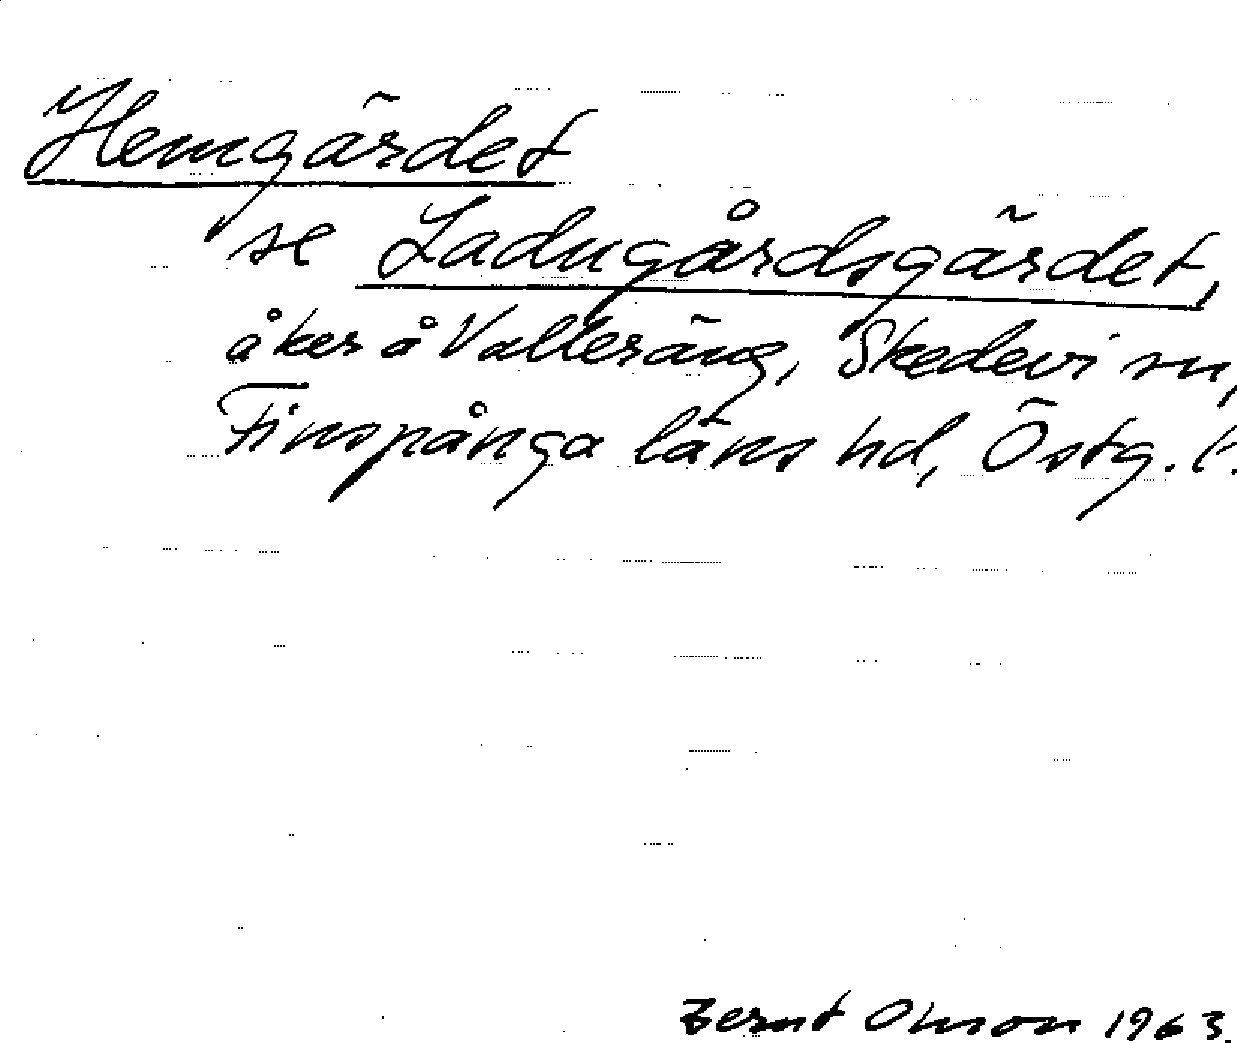 Hemgärdet
se Ladugårdsgärdet,
åker å Valleräng, Skedevi sn,
Finspånga läns hd, Östg. l.
Bernt Olsson 1963.